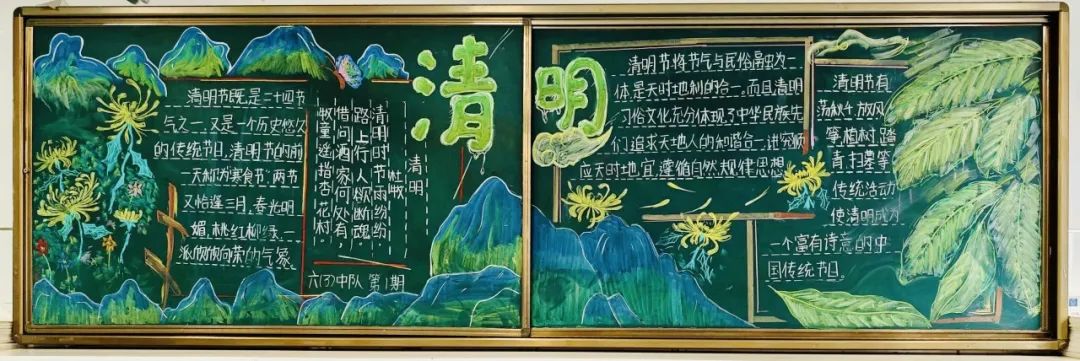 清明
清明节既是二十四节
气之一,又是一个历史悠久
的传统节日,清明节的前
一天称为寒食节,两节
又恰逢三月,春光明
媚,桃红柳绿,一
派欣欣向荣的气象。
清明
杜牧
清明时节雨纷纷,
路上行人欲断魂。
借问酒家何处有,
牧童遥指杏花村。
六(3)中队 第1期
清明节将节气与民俗融为一
体,是天时地利的合一,而且清明
习俗文化充分体现了中华民族先
们追求天地人的和谐合一,讲究顺
应天时地宜,遵循自然规律思想
清明节有
荡秋千,放风
筝,植树,踏
青,扫墓等
传统活动
使清明成为
一个富有诗意的中
国传统节日。